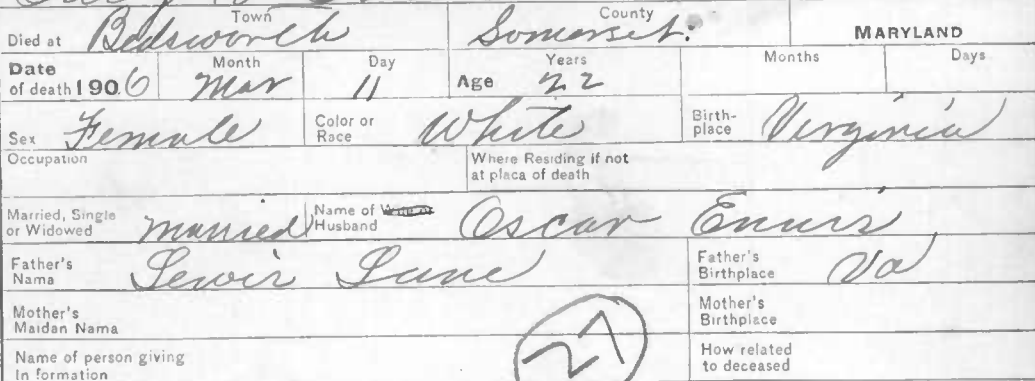 Town County
Died at Bedsworth Somerset. MARYLAND
Date of death 1906 Month Mar Day 11 Age Years 22 Months Days
Sex Female Color or Race White Birth-place Virginia
Occupation Where Residing if not at placa of death
Married, Single or Widowed married Name of Husband Oscar Ennis
Father's Nama Lewis Lane Father's Birthplace Va
Mother's Maidan Nama Mother's Birthplace
Name of person giving In formation 27 How related to deceased